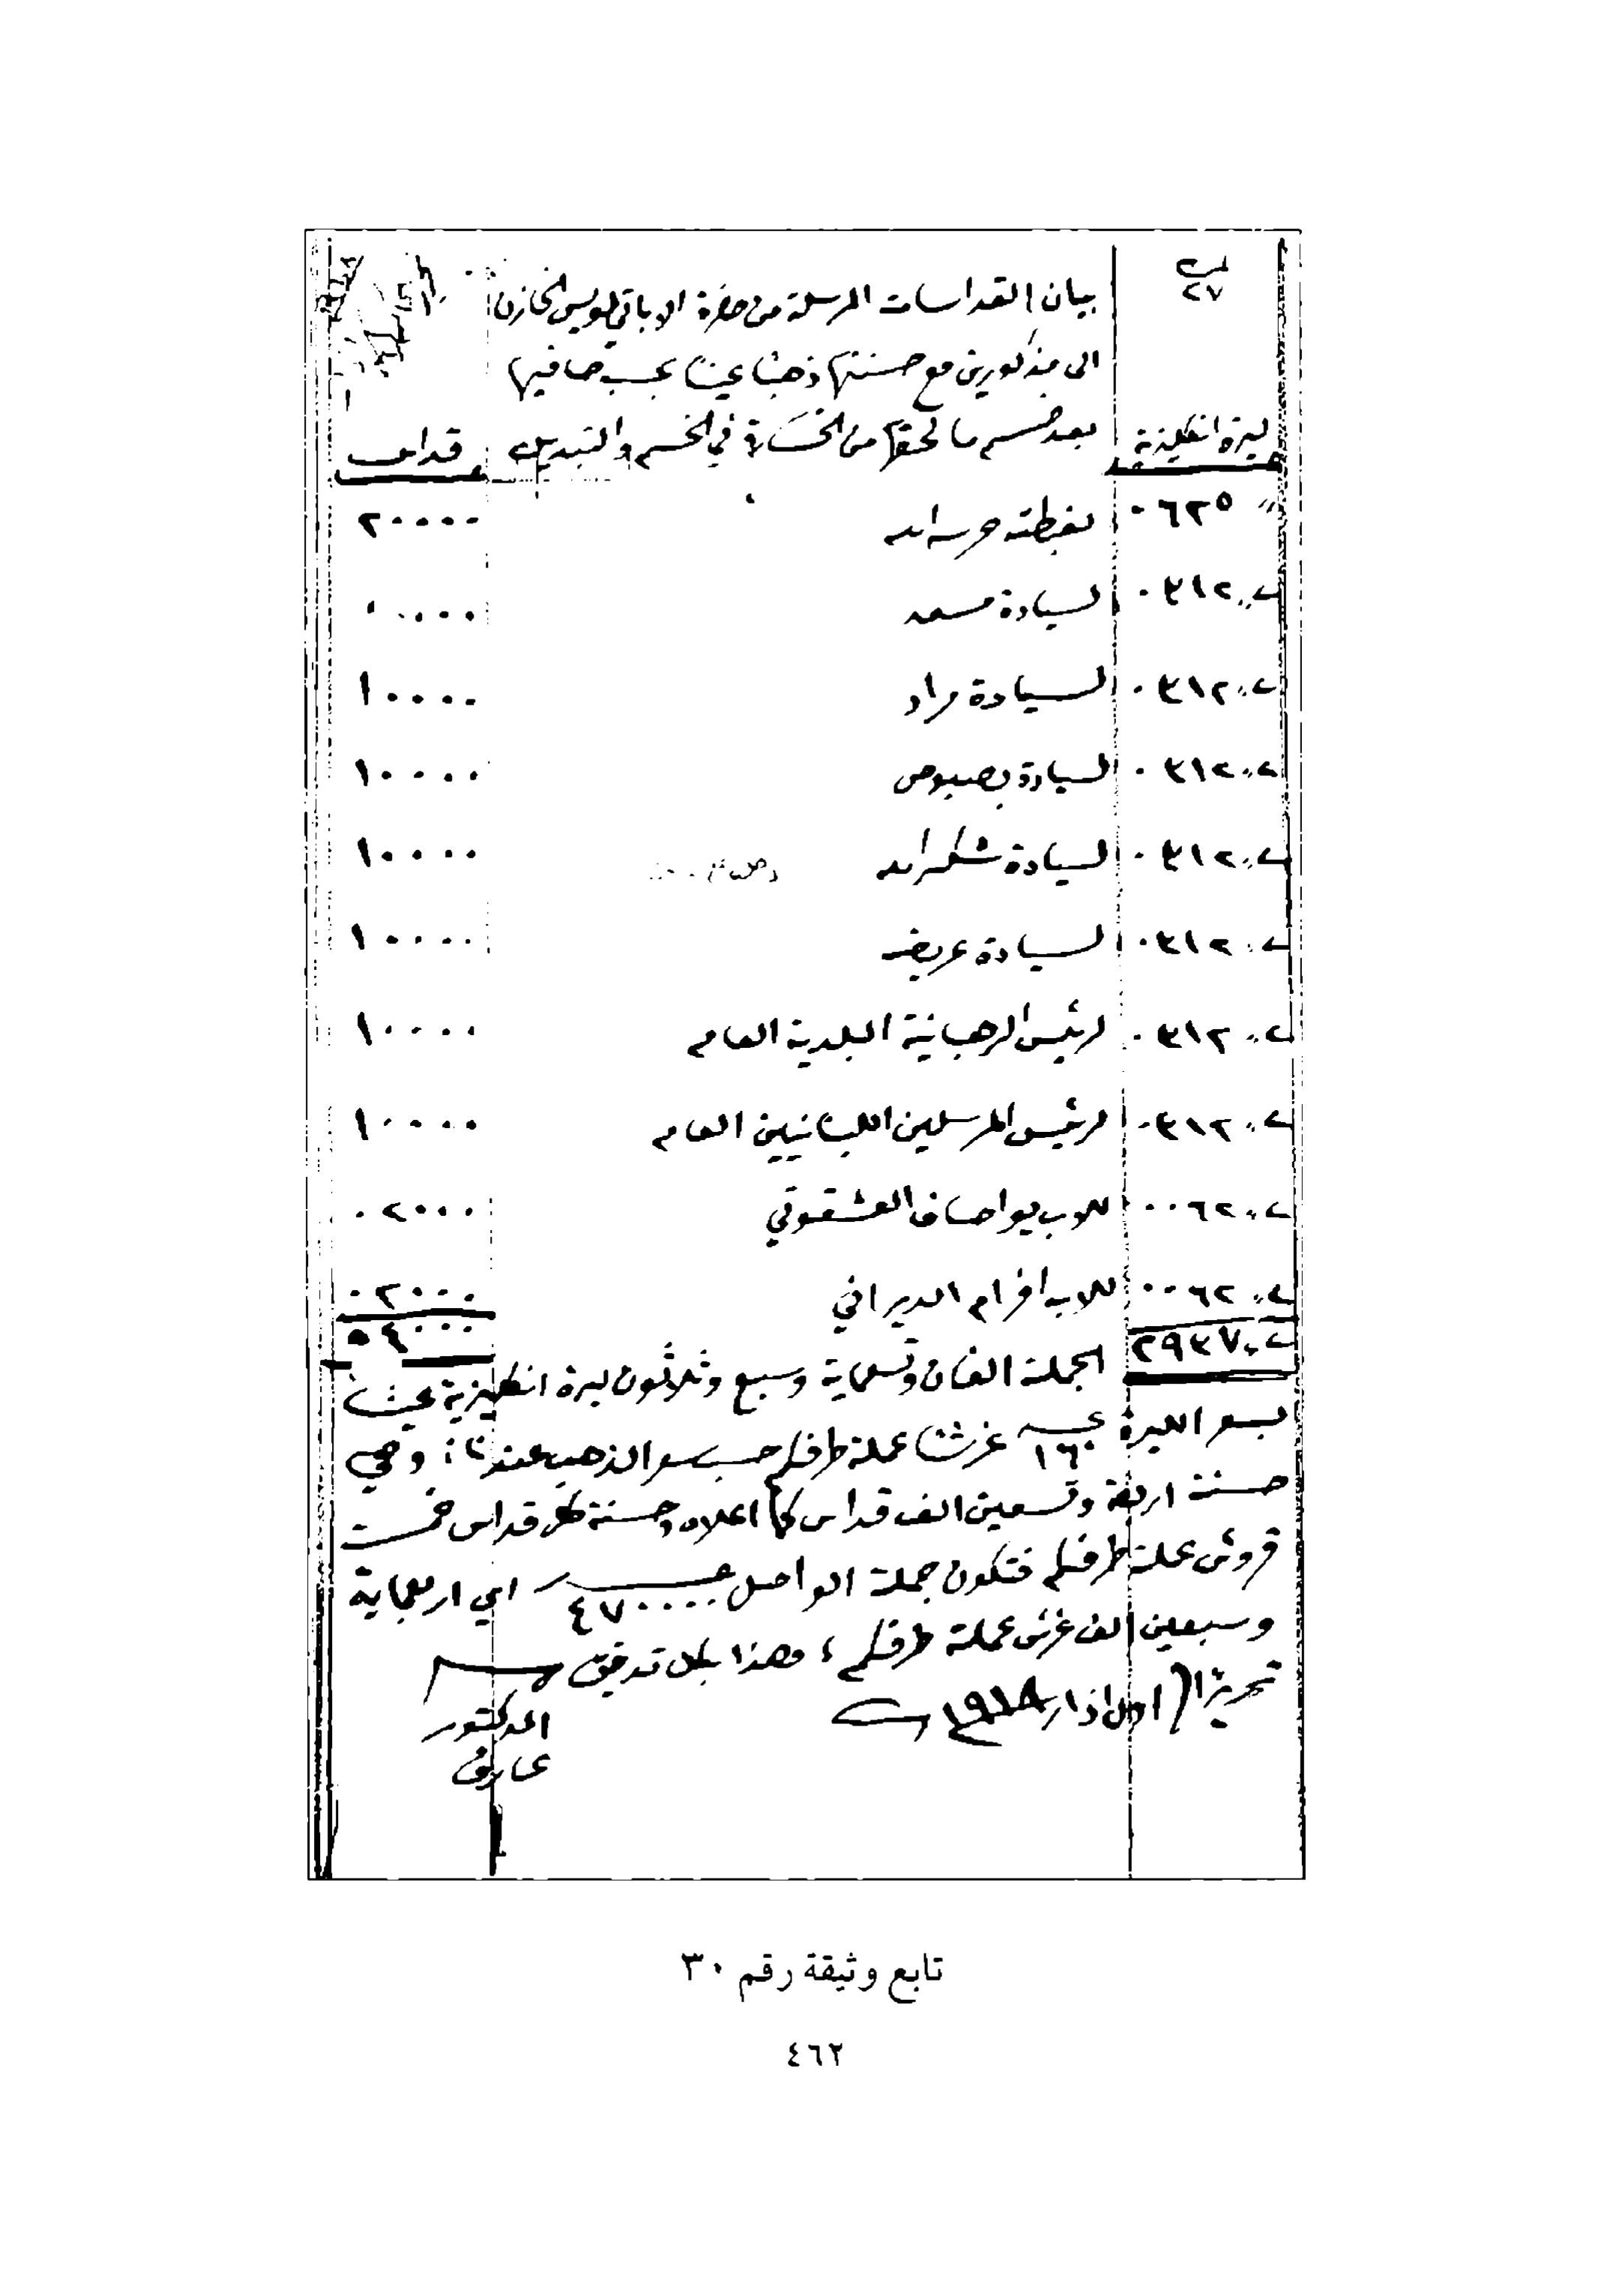 ٢٧
بيان القداسات المرسلة من حضرة الاباتي لويس الخازن
الى مذكورين مع حسنتها ذهبًا عينًا بحسب صافيها
ليرة انكليزية بعد خسم ما لحقها من الخسارة في الخسم والتبديل قداس
٠٦٢٥ لغبطته حرسه الله ٢٠٠٠٠
٠٣١٢ لسيادة مسعد ١٠٠٠٠
٠٣١٢ لسيادة مراد ١٠٠٠٠
٠٣١٢ لسيادة بصبوص ١٠٠٠٠
٠٣١٢ لسيادة شكرالله ١٠٠٠٠
٠٣١٢ لسيادة عريضه ١٠٠٠٠
٠٣١٢ لرئيس الرهبانية البلدية العام ١٠٠٠٠
٠٣١٢ لرئيس المرسلين اللبنانيين العام ١٠٠٠٠
٠٠٦٢ للاب يواصاف العشقوتي ٠٢٠٠٠
٠٠٦٢ للاب افرام الديراني ٠٢٠٠٠
٢٩٣٧ ٩٤٠٠٠
الجملة الفان وتسعماية وسبع وثلاثون ليرة انكليزية عينًا
بسعر الليرة ١٦٠ غرشًا عملة طرفكم حسب سعر الذهب عندنا؛ وهي
حسنة اربعة وتسعين الف قداس كما اعلاه وحسنة كل قداس خمسة
قروش عملة طرفكم فتكون جملة الواصل ٤٧٠٠٠٠ اي اربعماية
وسبعين الف غرش عملة طرفكم، وهذا بكل تدقيق
تحريرًا اول اذار ١٩١٨
الدكتور
عارف
تابع وثيقة رقم ٣٠
٤٦٢